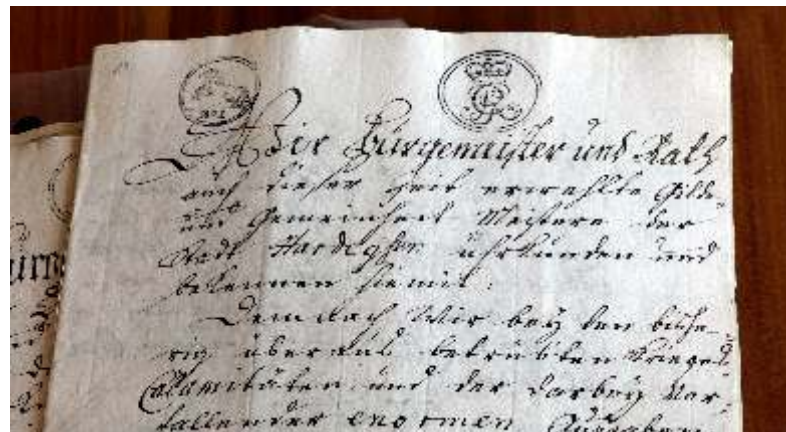 Wir Bürgemeister und Rath
auch dieser Zeit erwehlte Gilde-
und Gemeinheit Meistere der
Stadt Hardegsen uhrkunden und
bekennen hiemit:
Demnach Wir bey den bißhe-
rig überaus betrübten Krieges-
Calamitäten und der darbey vor-
fallender enormen Ausgaben